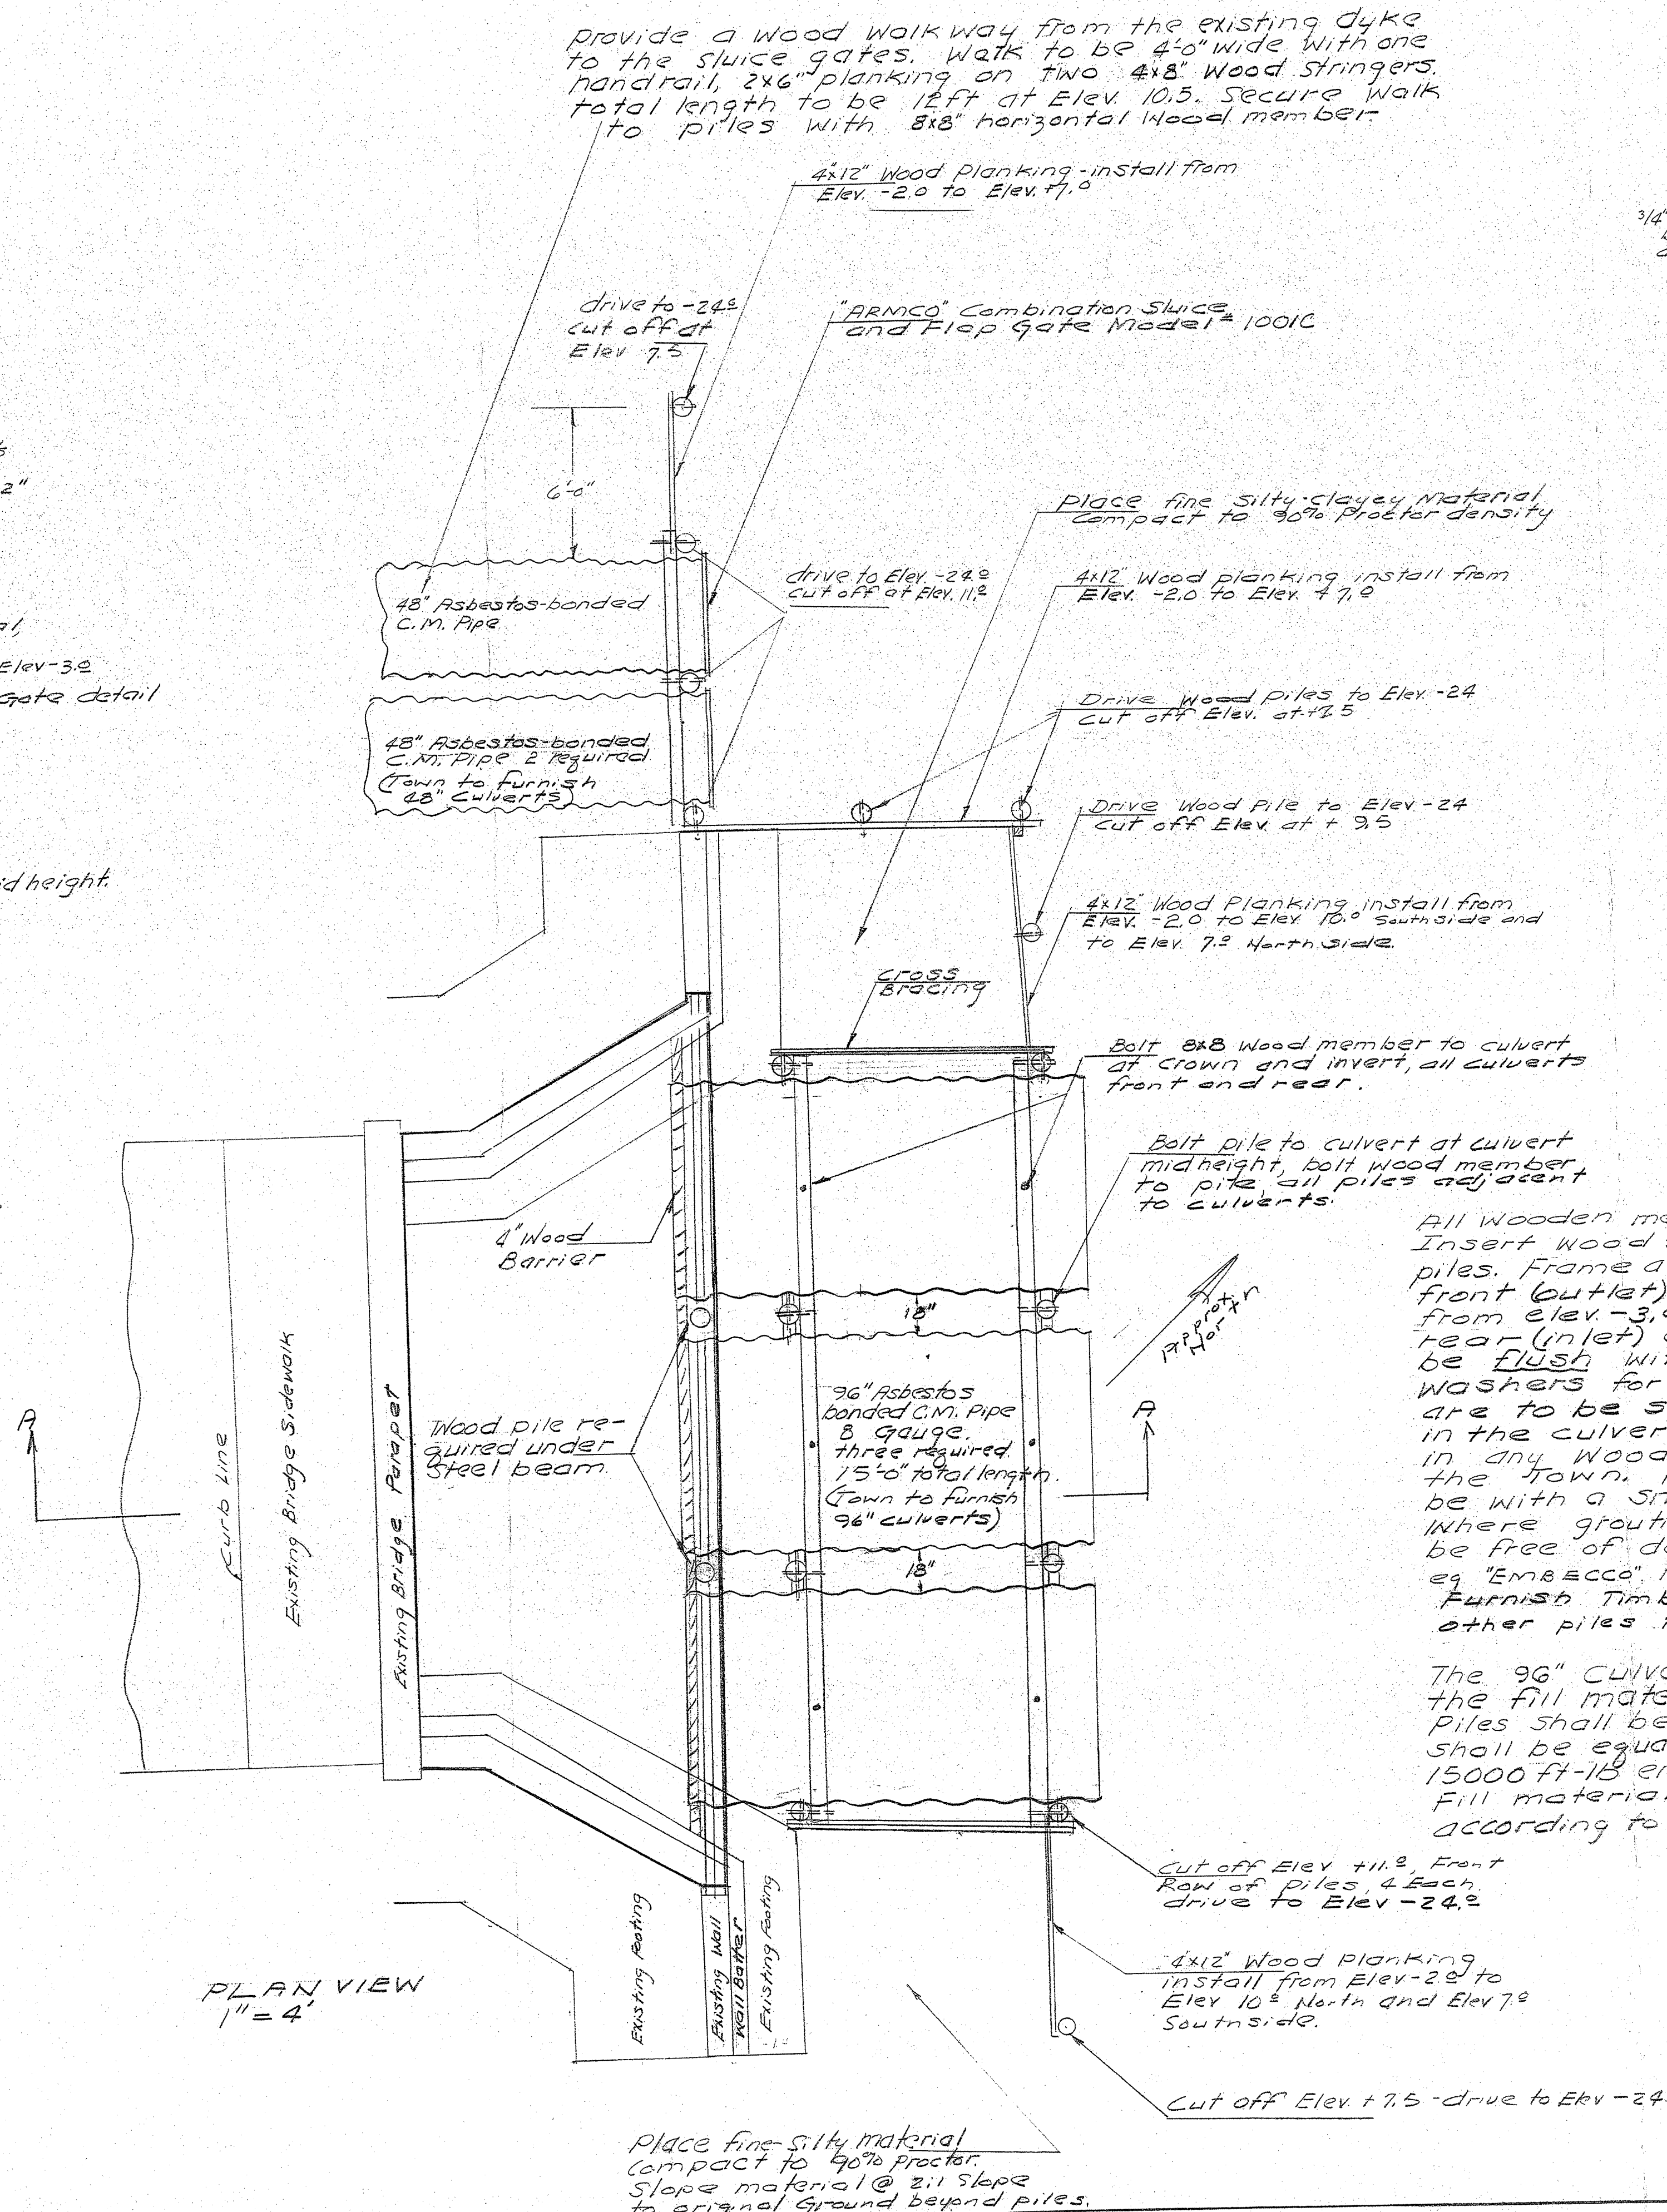 Provide a Wood Walkway from the existing dyke
to the sluice gates. Walk to be 4'-0" wide with one
handrail, 2x6" planking on two 4x8" Wood stringers.
total length to be 12ft at Elev. 10.5. Secure Walk
to piles with 8x8" horizontal Wood member
4x12" Wood Planking-install from
Elev. -2.0 to Elev. +7.0
3/4"
drive to -24.0
cut off at
Elev 7.5
"ARMCO" Combination Sluice
and Flap Gate Model # 1001C
2"
6'-0"
Place fine silty-clayey Material
Compact to 90% Proctor density
48" Asbestos-bonded
C.M. Pipe
drive to Elev. -24.0
Cut off at Elev. 11.0
4x12" Wood planking install from
Elev. -2.0 to Elev. +7.0
Elev-3.0
Gate detail
Drive Wood Piles to Elev. -24
Cut off Elev. at +7.5
48" Asbestos-bonded
C.M. Pipe 2 required
(Town to furnish
48" Culverts)
Drive Wood Pile to Elev -24
Cut off Elev. at + 9.5
id height.
4x12" Wood Planking install from
Elev. -2.0 to Elev 10.0 South side and
to Elev. 7.0 North side.
Cross
Bracing
Bolt 8x8 Wood member to culvert
at crown and invert, all culverts
front and rear.
Bolt pile to culvert at culvert
midheight, bolt wood member
to pile, all piles adjacent
to culverts.
4" Wood
Barrier
18"
Approx
North
All Wooden me
Insert Wood
piles. Frame a
front (outlet)
from elev. -3.
rear (inlet)
be flush wi
washers for
are to be s
in the culver
in any Wood
the Town.
be with a sm
Where grout
be free of d
eg "EMBECCO",
Furnish Timb
other piles
96" Asbestos
bonded C.M. Pipe
8 Gauge.
three required.
15'-0" total length.
(Town to furnish
96" culverts)
A
A
Wood pile re-
quired under
Steel beam.
Curb Line
Existing Bridge Sidewalk
Existing Bridge Parapet
18"
The 96" Culve
the fill mate
Piles shall be
Shall be equa
15000 ft-lb en
Fill material
according to
Cut off Elev +11.0, Front
Row of piles, 4 Each
drive to Elev -24.0
Existing Footing
Existing Wall
Wall Batter
Existing Footing
4x12" Wood Planking
install from Elev-2.0 to
Elev 10.0 North and Elev 7.0
Southside.
PLAN VIEW
1" = 4'
Cut off Elev. +7.5 -drive to Elev -24.
Place fine-silty material
Compact to 90% Proctor.
Slope material @ 2:1 Slope
to original Ground beyond piles.